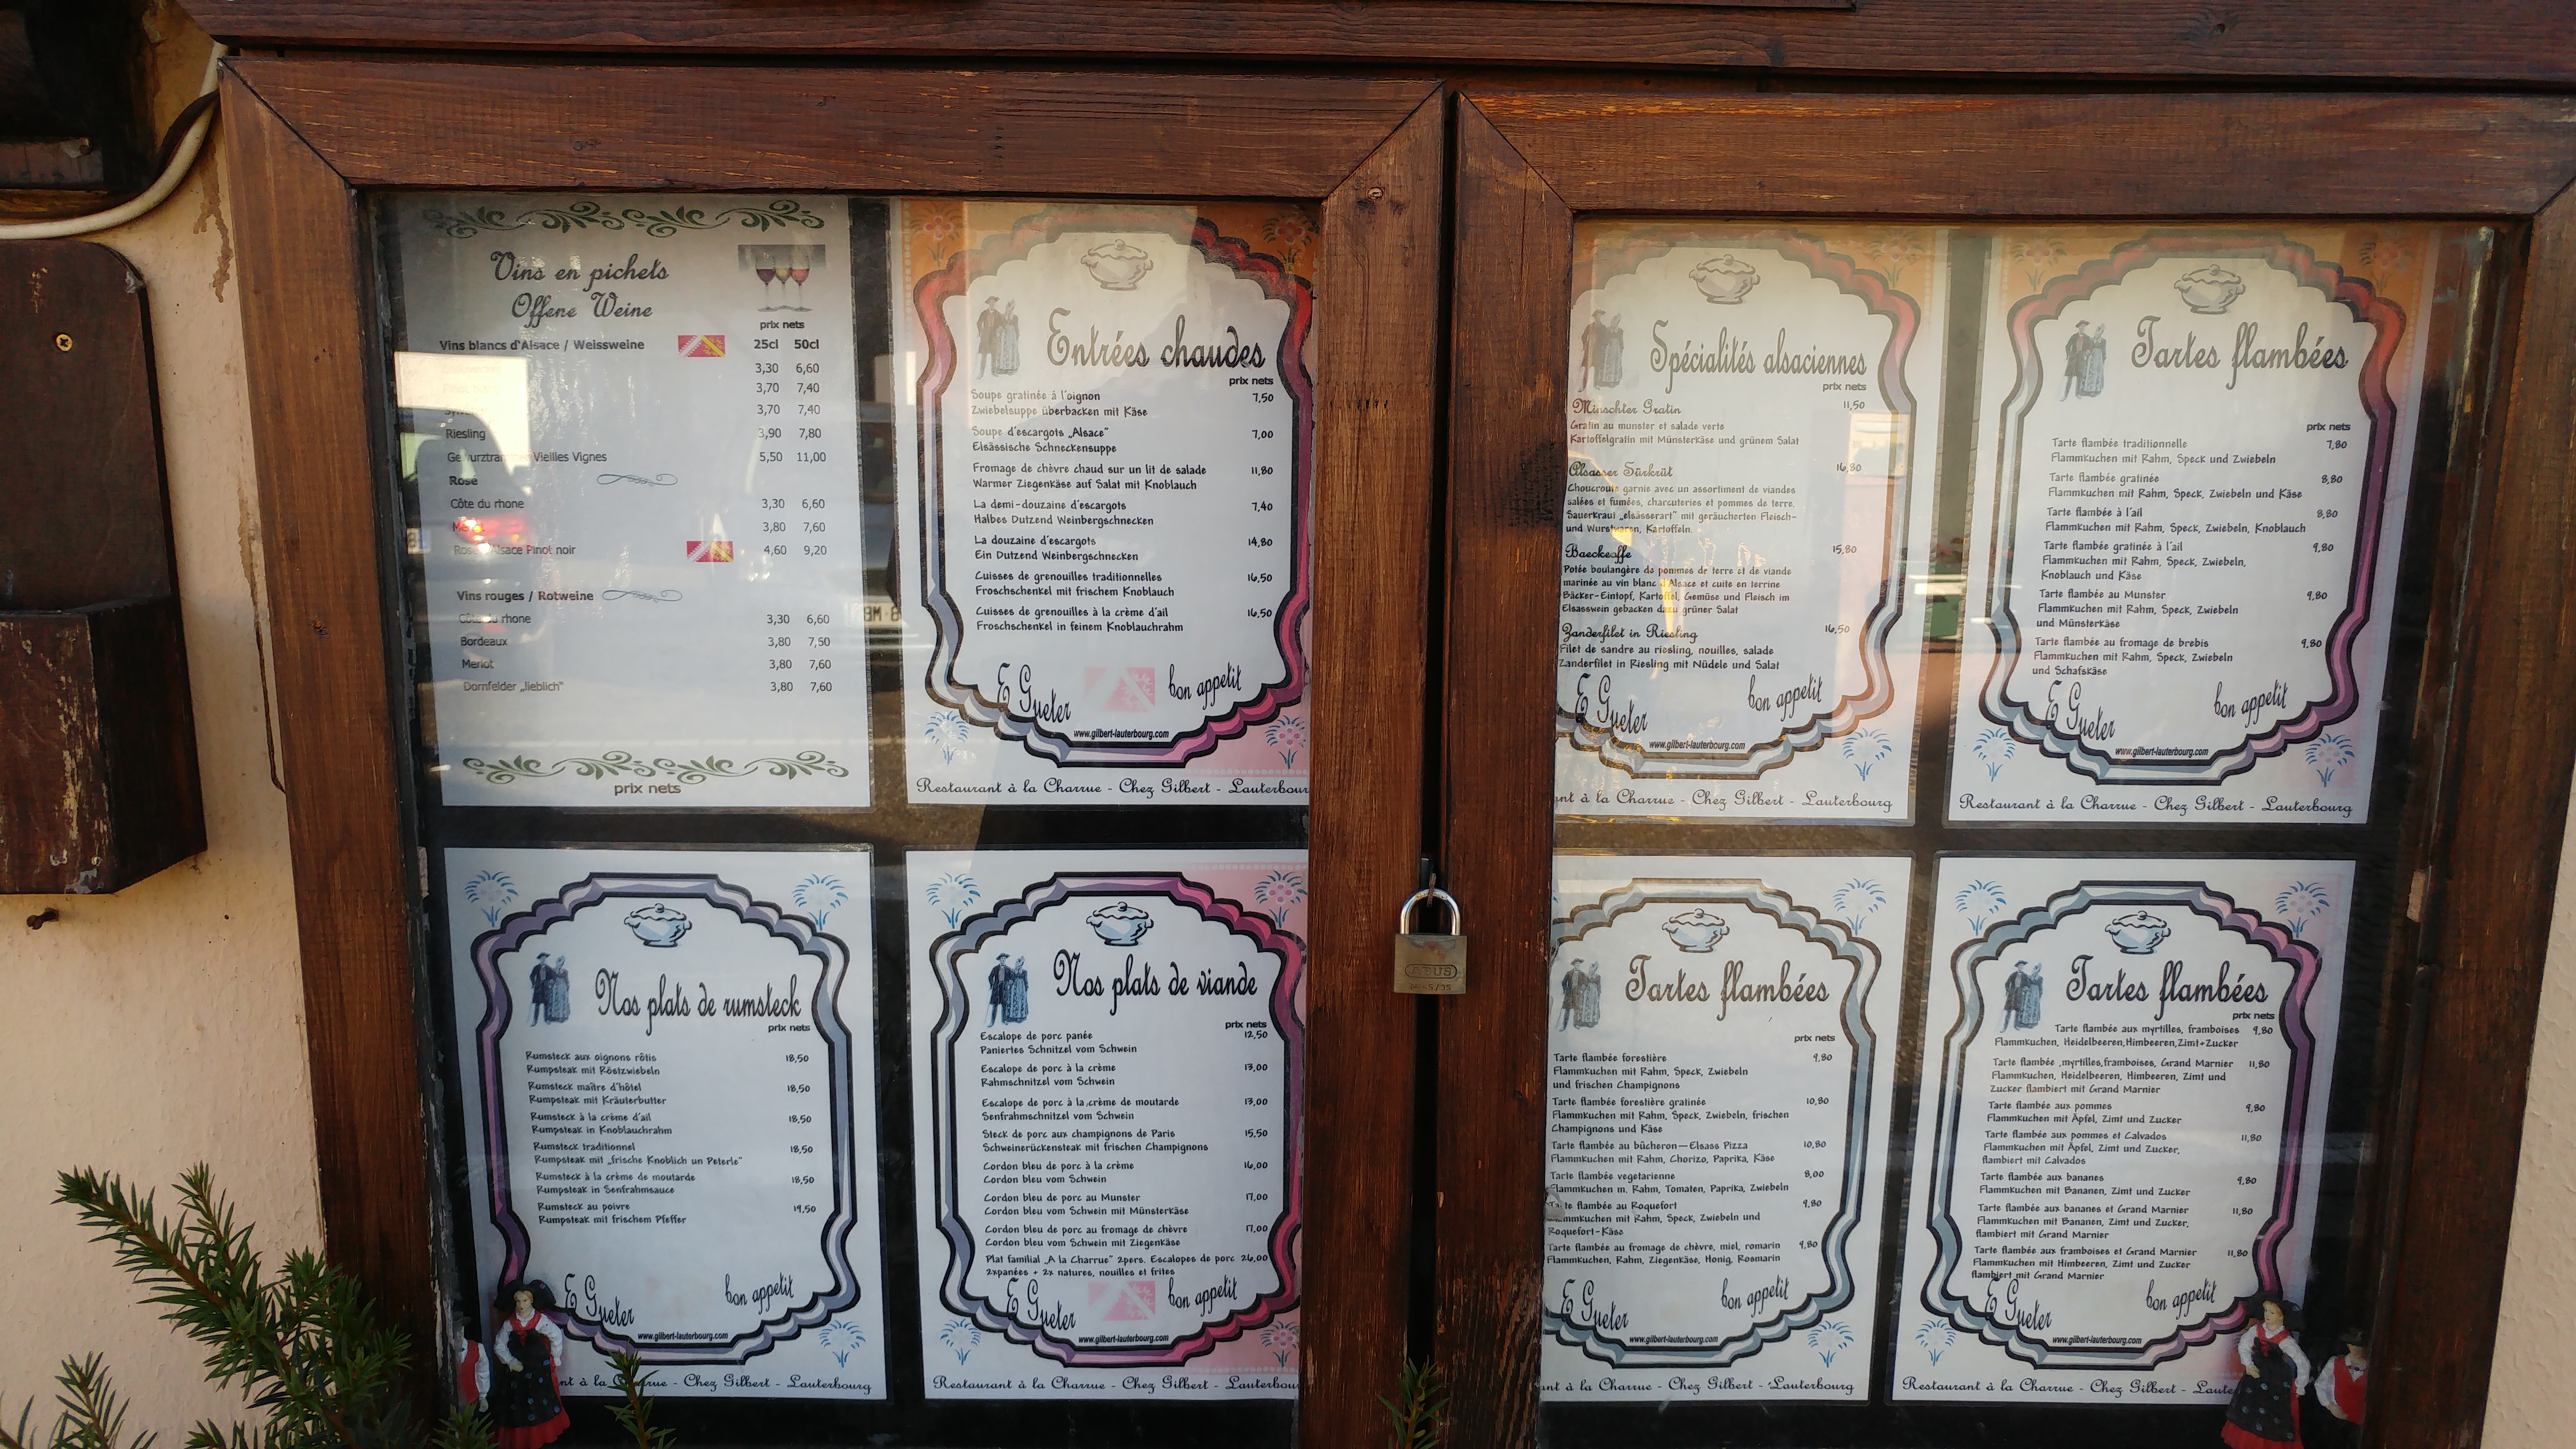 Vins en pichets
Offene Weine
prix nets
Vins blancs d'Alsace / Weissweine 25cl 50cl
3,30 6,60
3,70 7,40
3,70 7,40
Riesling 3,90 7,80
Vieilles Vignes 5,50 11,00
Rosé
Côte du rhone 3,30 6,60
3,80 7,60
Alsace Pinot noir 4,60 9,20
Vins rouges / Rotweine
Côte du rhone 3,30 6,60
Bordeaux 3,80 7,50
Merlot 3,80 7,60
Dornfelder „lieblich" 3,80 7,60
prix nets
Entrées chaudes
prix nets
Soupe gratinée à l'oignon 7,50
Zwiebelsuppe überbacken mit Käse
Soupe d'escargots „Alsace" 7,00
Elsässische Schneckensuppe
Fromage de chèvre chaud sur un lit de salade 11,80
Warmer Ziegenkäse auf Salat mit Knoblauch
La demi-douzaine d'escargots 7,40
Halbes Dutzend Weinbergschnecken
La douzaine d'escargots 14,80
Ein Dutzend Weinbergschnecken
Cuisses de grenouilles traditionnelles 16,50
Froschschenkel mit frischem Knoblauch
Cuisses de grenouilles à la crème d'ail 16,50
Froschschenkel in feinem Knoblauchrahm
E Gueter bon appetit
www.gilbert-lauterbourg.com
Restaurant à la Charrue - Chez Gilbert - Lauterbour
Spécialités alsaciennes
prix nets
Minschter Gratin 11,50
Gratin au munster et salade verte
Kartoffelgratin mit Münsterkäse und grünem Salat
Alsasser Sürkrüt 16,80
Choucroute garnie avec un assortiment de viandes
salées et fumées, charcuteries et pommes de terre.
Sauerkraut „elsässerart" mit geräucherten Fleisch-
und Wurstwaren, Kartoffeln.
Baeckeoffe 15,80
Potée boulangère de pommes de terre et de viande
marinée au vin blanc d'Alsace et cuite en terrine
Bäcker-Eintopf, Kartoffel, Gemüse und Fleisch im
Elsasswein gebacken dazu grüner Salat
Zanderfilet in Riesling 16,50
Filet de sandre au riesling, nouilles, salade
Zanderfilet in Riesling mit Nüdele und Salat
E Gueter bon appetit
www.gilbert-lauterbourg.com
nt à la Charrue - Chez Gilbert - Lauterbourg
Tartes flambées
prix nets
Tarte flambée traditionnelle 7,80
Flammkuchen mit Rahm, Speck und Zwiebeln
Tarte flambée gratinée 8,80
Flammkuchen mit Rahm, Speck, Zwiebeln und Käse
Tarte flambée à l'ail 8,80
Flammkuchen mit Rahm, Speck, Zwiebeln, Knoblauch
Tarte flambée gratinée à l'ail 9,80
Flammkuchen mit Rahm, Speck, Zwiebeln,
Knoblauch und Käse
Tarte flambée au Munster 9,80
Flammkuchen mit Rahm, Speck, Zwiebeln
und Münsterkäse
Tarte flambée au fromage de brebis 9,80
Flammkuchen mit Rahm, Speck, Zwiebeln
und Schafskäse
E Gueter bon appetit
www.gilbert-lauterbourg.com
Restaurant à la Charrue - Chez Gilbert - Lauterbourg
Nos plats de rumsteck
prix nets
Rumsteck aux oignons rôtis 18,50
Rumpsteak mit Röstzwiebeln
Rumsteck maître d'hôtel 18,50
Rumpsteak mit Kräuterbutter
Rumsteck à la crème d'ail 18,50
Rumpsteak in Knoblauchrahm
Rumsteck traditionnel 18,50
Rumpsteak mit „frische Knoblich un Peterle"
Rumsteck à la crème de moutarde 18,50
Rumpsteak in Senfrahmsauce
Rumsteck au poivre 19,50
Rumpsteak mit frischem Pfeffer
E Gueter bon appetit
www.gilbert-lauterbourg.com
nt à la Charrue - Chez Gilbert - Lauterbourg
Nos plats de viande
prix nets
Escalope de porc panée 12,50
Paniertes Schnitzel vom Schwein
Escalope de porc à la crème 13,00
Rahmschnitzel vom Schwein
Escalope de porc à la crème de moutarde 13,00
Senfrahmschnitzel vom Schwein
Steck de porc aux champignons de Paris 15,50
Schweinerückensteak mit frischen Champignons
Cordon bleu de porc à la crème 16,00
Cordon bleu vom Schwein
Cordon bleu de porc au Munster 17,00
Cordon bleu vom Schwein mit Münsterkäse
Cordon bleu de porc au fromage de chèvre 17,00
Cordon bleu vom Schwein mit Ziegenkäse
Plat familial „A la Charrue" 2pers. Escalopes de porc 26,00
2xpanées + 2x natures, nouilles et frites
E Gueter bon appetit
www.gilbert-lauterbourg.com
Restaurant à la Charrue - Chez Gilbert - Lauterbou
ABUS
Tartes flambées
prix nets
Tarte flambée forestière 9,80
Flammkuchen mit Rahm, Speck, Zwiebeln
und frischen Champignons
Tarte flambée forestière gratinée 10,80
Flammkuchen mit Rahm, Speck, Zwiebeln, frischen
Champignons und Käse
Tarte flambée au bûcheron—Elsass Pizza 10,80
Flammkuchen mit Rahm, Chorizo, Paprika, Käse
Tarte flambée vegetarienne 8,00
Flammkuchen m. Rahm, Tomaten, Paprika, Zwiebeln
te flambée au Roquefort 9,80
mmkuchen mit Rahm, Speck, Zwiebeln und
Roquefort-Käse
Tarte flambée au fromage de chèvre, miel, romarin 9,80
Flammkuchen, Rahm, Ziegenkäse, Honig, Rosmarin
E Gueter bon appetit
www.gilbert-lauterbourg.com
nt à la Charrue - Chez Gilbert - Lauterbourg
Tartes flambées
prix nets
Tarte flambée aux myrtilles, framboises 9,80
Flammkuchen, Heidelbeeren,Himbeeren,Zimt+Zucker
Tarte flambée ,myrtilles,framboises, Grand Marnier 11,80
Flammkuchen, Heidelbeeren, Himbeeren, Zimt und
Zucker flambiert mit Grand Marnier
Tarte flambée aux pommes 9,80
Flammkuchen mit Äpfel, Zimt und Zucker
Tarte flambée aux pommes et Calvados 11,80
Flammkuchen mit Äpfel, Zimt und Zucker,
flambiert mit Calvados
Tarte flambée aux bananes 9,80
Flammkuchen mit Bananen, Zimt und Zucker
Tarte flambée aux bananes et Grand Marnier 11,80
Flammkuchen mit Bananen, Zimt und Zucker,
flambiert mit Grand Marnier
Tarte flambée aux framboises et Grand Marnier 11,80
Flammkuchen mit Himbeeren, Zimt und Zucker
flambiert mit Grand Marnier
E Gueter bon appetit
www.gilbert-lauterbourg.com
Restaurant à la Charrue - Chez Gilbert - Laute